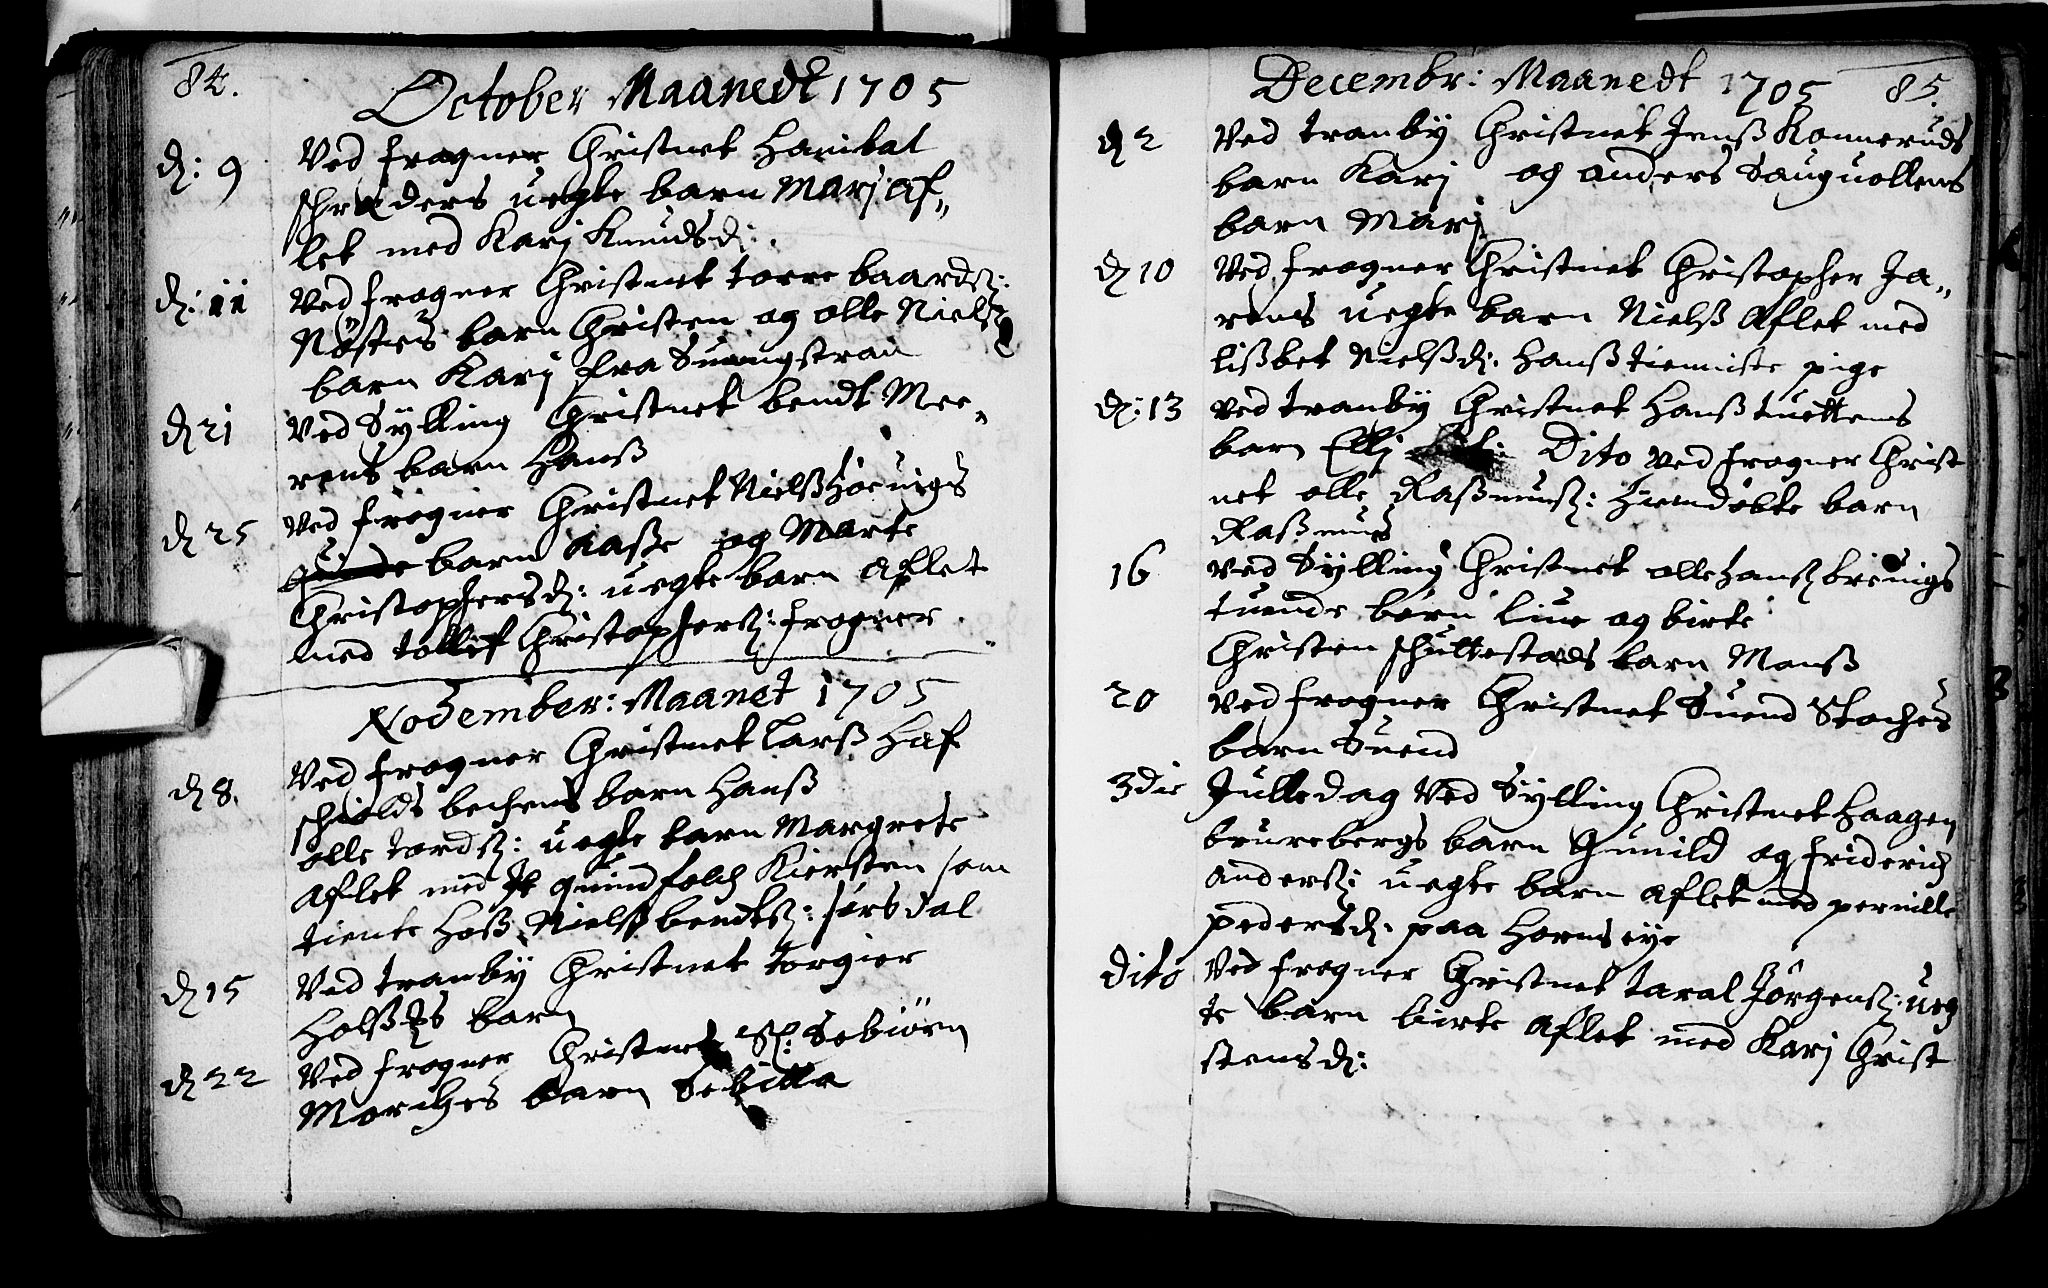 84.
October Maanedt 1705
d: 9 Ved frogner Christnet Hanibal
schrøders uegte barn Marj af„
let med Karj Knudsd:
d: 11 Ved frogner Christnet torre baards:
Nøstes barn Christen og olle Nielss
barn Karj fra Suangstran
d 21 Ved Sylling Christnet bendt Mee„
rens barn Hanß
d 25 Ved frogner Christnet Nielß Høeuigs
barn Aaße og Marte
Christophersd: uegte barn aflet
med tollef Christophers: frogner
November: Maanet 1705
d 8. Ved frogner Christnet Larß Haf
schiolds bechens barn Hanß
olle tords: uegte barn Margrete
aflet med It quindfolch Kiersten som
tiente hoß Nielß bendts: sørsdal
d 15 Ved tranby Christnet torgier
Holß barn
d 22 Ved frogner Christnet Sl: Sebiørn
Morches barn Sebilla
Decembr: Maanedt 1705 85.
d 2 Ved tranby Christnet Jenß Konneruds
barn Karj og anders Sauguollens
barn Marj
d 10 Ved frogner Christnet Christopher Ja„
rens uegte barn Nielß aflet med
lißbet Nielßd: Hanß tienniste pige
d: 13 Ved tranby Christnet Hanß tuettens
barn Ellj Dito Ved frogner Christ
net olle Raßmuss: Hiemdøbte barn
Raßmus
16 Ved Sylling Christnet olle Hanss breuigs
tuende børn liue og birte
Christen schuttestads barn Monß
20 Ved frogner Christnet Suend Stoches
barn Suend
3die Julledag Ved Sylling Christnet Haagen
brurebergs barn Gunild og friderich
anderss: uegte barn aflet med pernille
pedersd. paa Horns eye
Dito Ved frogner Christnet taral Jørgens: ueg
te barn birte aflet med Karj Christ
stensd: